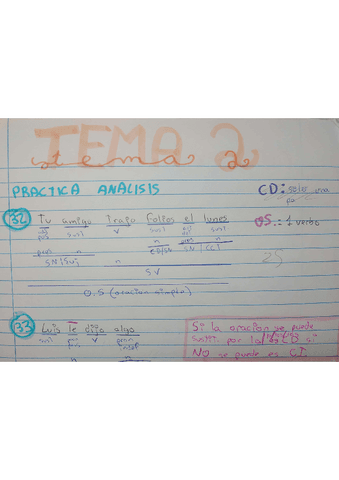 TEMA 2
tema 2
PRACTICA ANALISIS
CD: solo una
32 Tu amigo trajo folios el lunes
OS.: 1 verbo
sust V sust sust
n
CD/SN SN CCT
SN Suj n
SV
O.S (oración simple)
33 Luis le dijo algo
sust V pron
n
Si la oración se puede
sustit por la/los CD si
NO se puede es CI